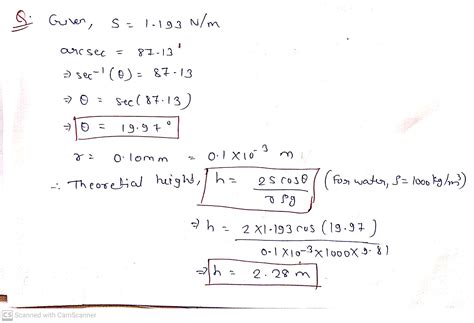 Q: Given, S = 1.193 N/m
arcsec = 87.13'
⇒ sec⁻¹(θ) = 87.13
⇒ θ = sec(87.13)
⇒ θ = 19.97°
r = 0.10mm = 0.1 × 10⁻³ m
∴ Theoretial height, h = 2S cosθ / rρg (For water, ρ = 1000 kg/m³)
⇒ h = 2 × 1.193 cos (19.97) / 0.1 × 10⁻³ × 1000 × 9.81
⇒ h = 2.28 m
CS Scanned with CamScanner